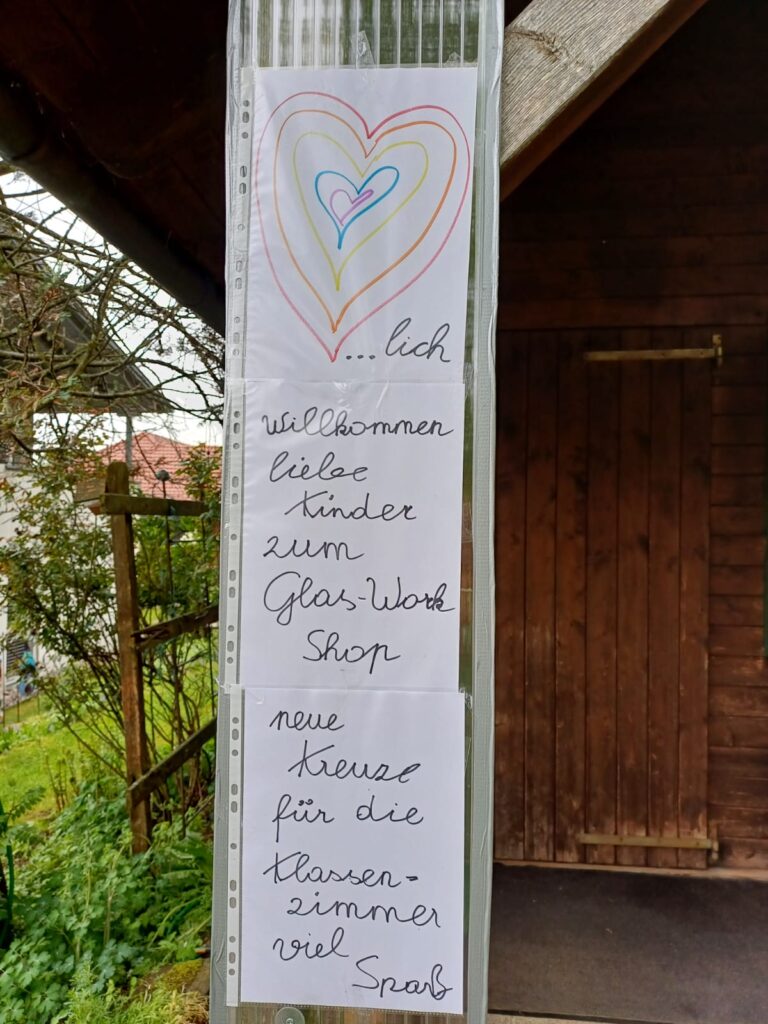 ...lich
Willkommen
liebe
Kinder
zum
Glas-Work
Shop
neue
Kreuze
für die
Klassen=
zimmer
viel
Spaß